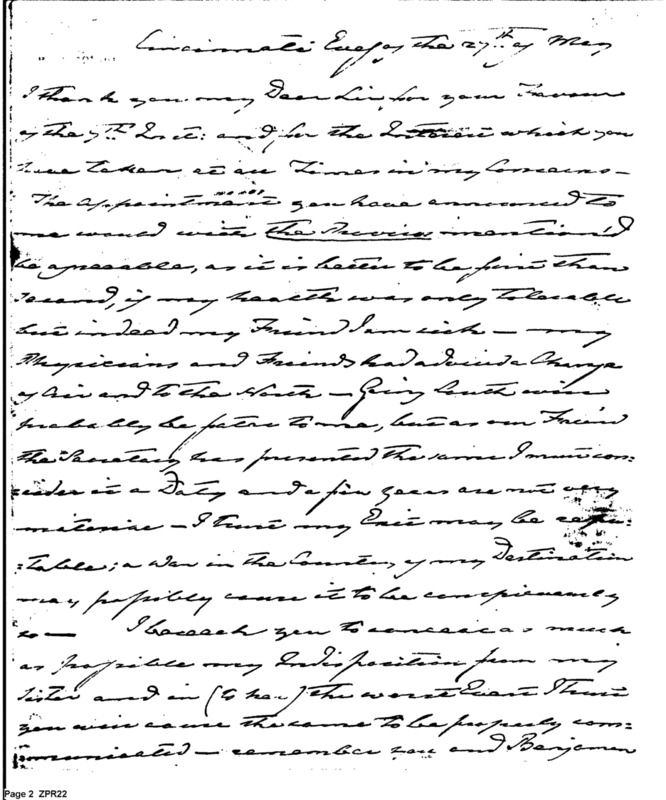 Cincinnati Eveg of the 27th of May
I thank you my Dear Sir, for your Favour
of the 7th Inst: and, for the Interest which you
have taken at all Times in my Concerns –
The appointment you have announced to
me would with the Proviso mention'd
be agreeable, as it is better to be first than
second, if my health was only tolerable
but indeed my Friend I am sick – my
Physicians and Friends had advised a Change
of Air and to the North – Going South will
probably be fatal to me, but as our Friend
the Secretary has presented the same I must con:
:sider it a Duty and a few years are not very
material – I trust my Exit may be repu:
:table; a War in the Country of my Destination
may possibly cause it to be conspicuously
so — I beseech you to conceal as much
as possible my Indisposition from my
Sister and in (to her) the worst Event I trust
you will cause the same to be properly com:
:municated – remember you and Benjamin
Page 2 ZPR22